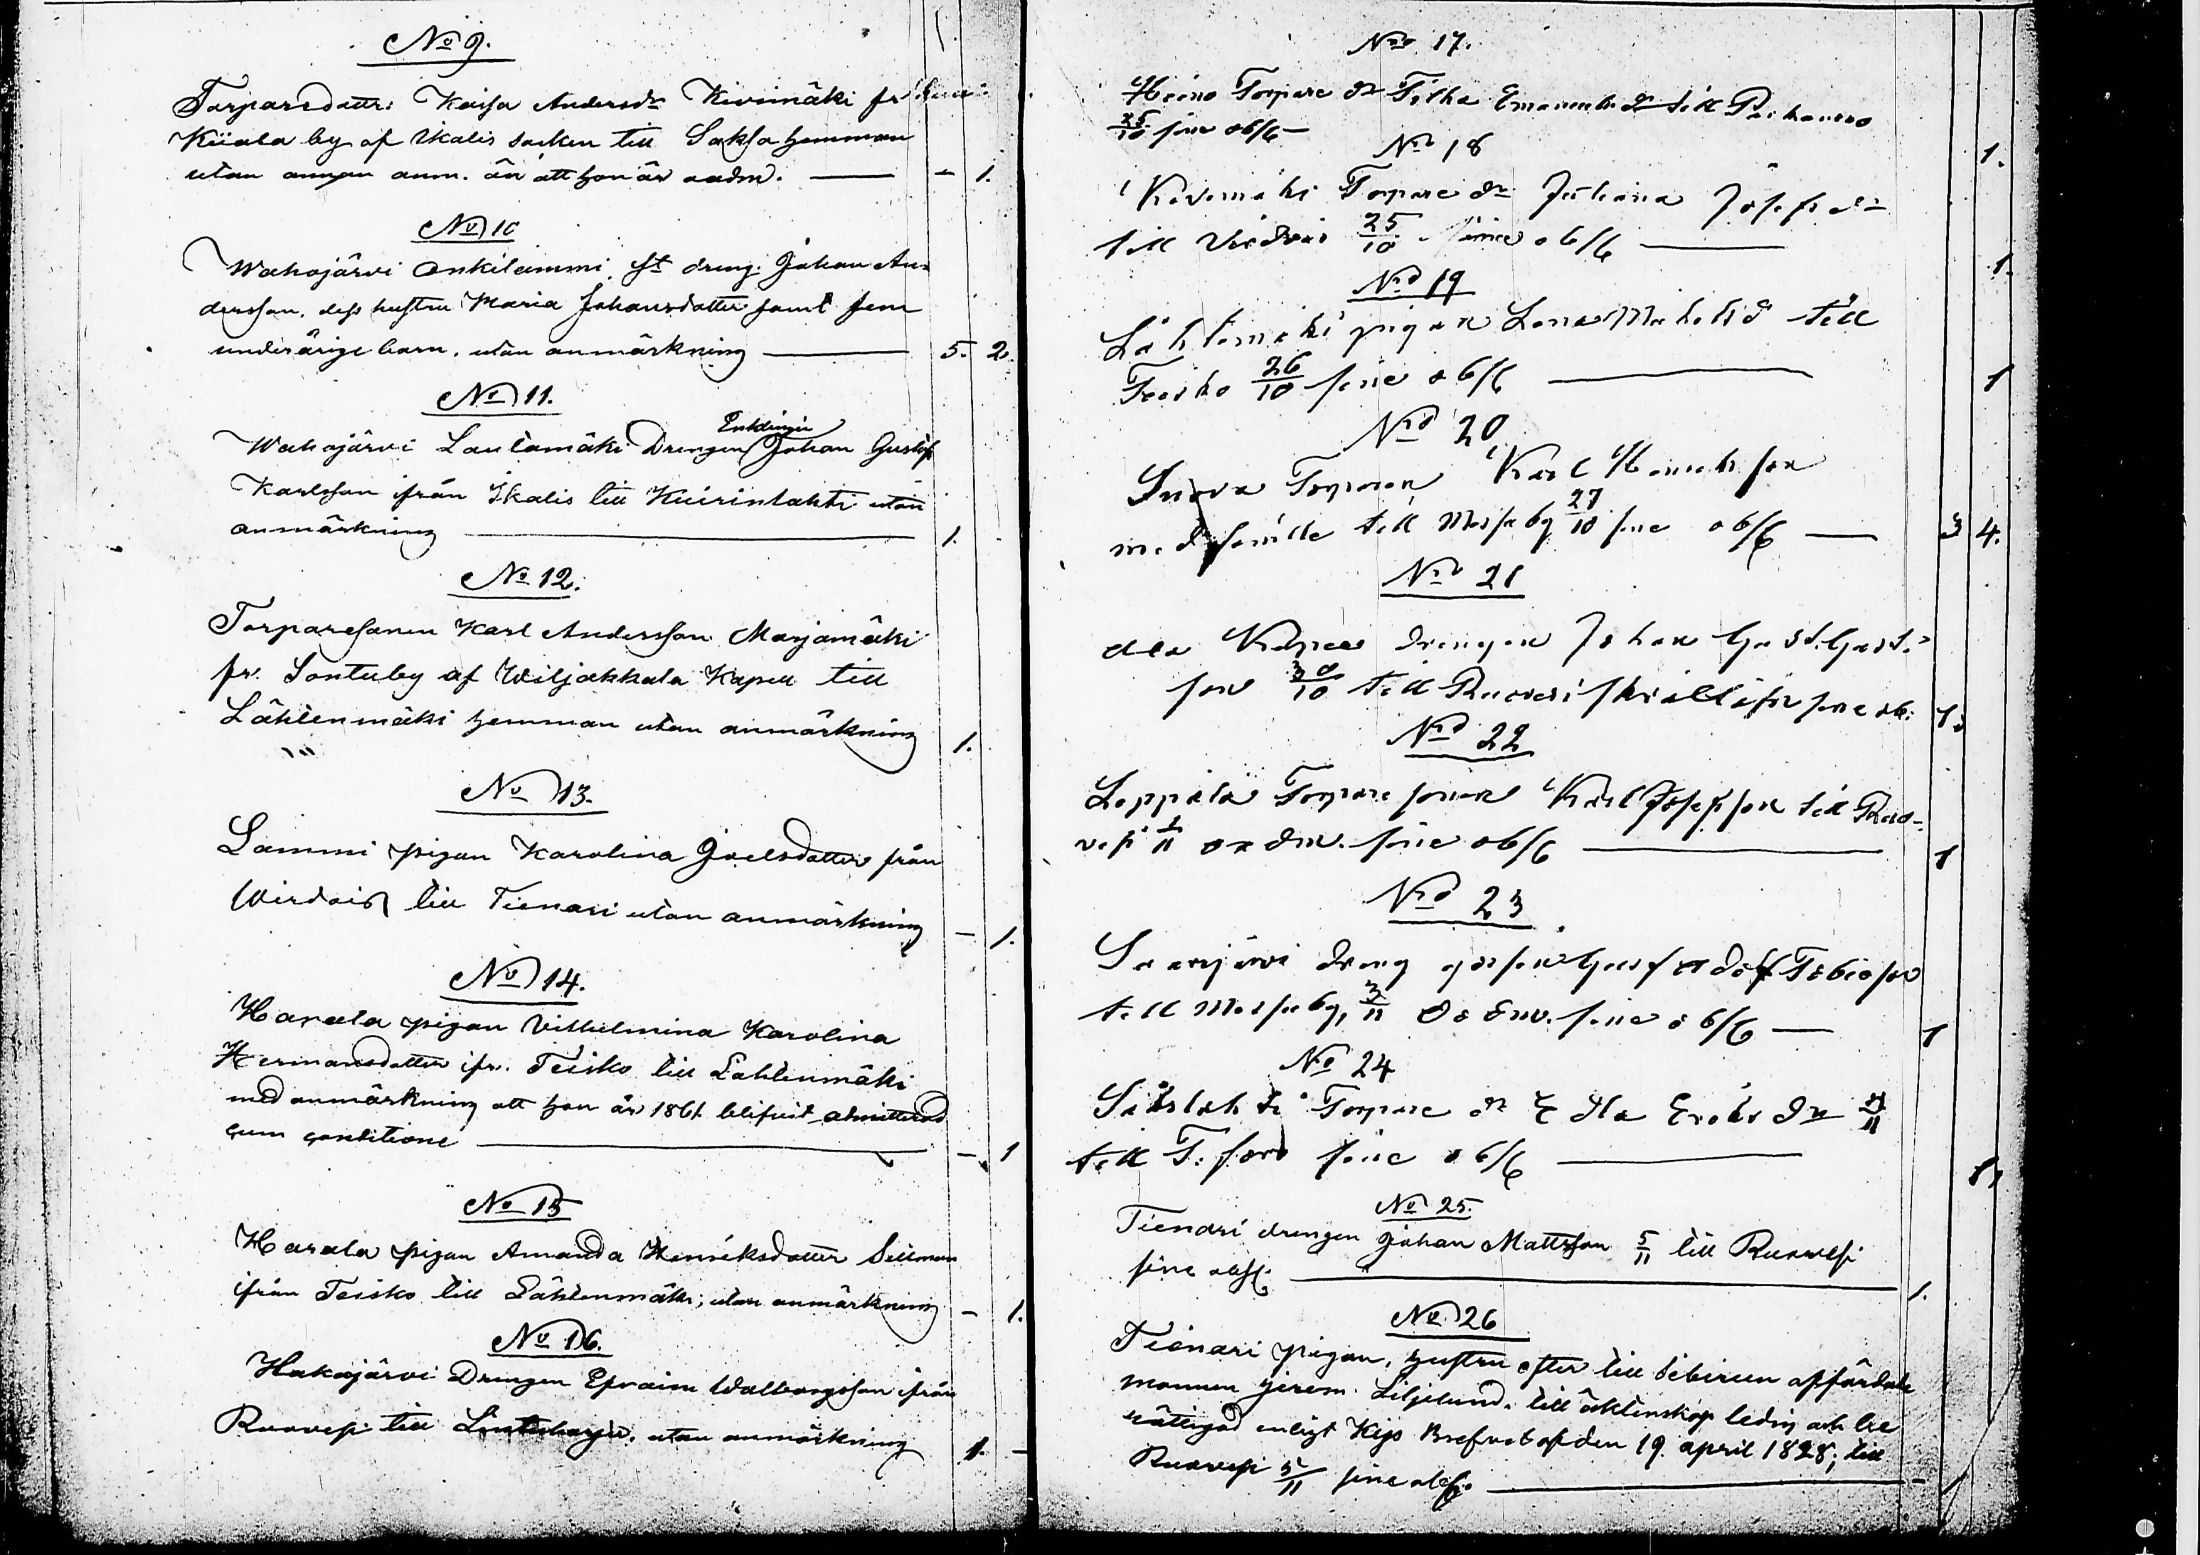 No 9.
Torparedottr: Kaisa Andersdr Kivimäki fr
Kiiala by af Ikalis socken till Saksa hemman
utan annan anm. än att hon är oadm. — - 1.
No 10
Wahojärvi Onkilammi, dreng: Johan An-
dersson, dess hustru Maria Johansdotter samt fem
underårige barn, utan anmärkning — 5. 2.
No 11.
Enklingen
Wahojärvi Lautamäki Drengen Johan Gustaf
Karlsson ifrån Ikalis till Kuirinlahti utan
anmärkning — 1.
No 12.
Torparesonen Karl Andersson Marjamäki
fr. Sontuby af Wiljakkala Kapell till
Lähtenmäki hemman utan anmärkning 1.
No 13.
Lammi pigan Karolina Joelsdotter från
Wirdois till Tienari utan anmärkning - 1.
No 14.
Harala pigan Vilhelmina Karolina
Hermansdotter ifr. Teisko till Lähtenmäki
med anmärkning att hon år 1861 blifvit admitterad
cum conditione — - 1
No 15
Harala pigan Amanda Henriksdotter Sillman
ifrån Teisko till Lähtenmäki, utan anmärkning - 1.
No 16.
Hakojärvi Drengen Efraim Walborgsson ifrån
Ruovesi till utan anmärkning 1. -
No 17.
Heino Torpare dr Tilha Emanuelsdr till
25/10 sine obs — 1.
No 18
Kivimäki Torpare dr Juliana Josefsdr
till Virdois 25/10 sine obs — 1.
No 19
Lähtemäki pigan Lena Mickelsd till
Teisko 26/10 sine obs — 1
No 20
Suova Torparen Karl Henrikson
med familie till by 27/10 sine obs — 3 4.
No 21
Drengen Johan Gust. Gust.
son 30/10 till Ruovesi sine ob: 1.
No 22
Leppälä Torpare sonen Karl Josefsson till Ruo-
vesi 1/11 oadm. sine obs — 1
No 23
Saarijärvi Dreng gossen Gust Adolf Tobiason
till by, 3/11 sine obs — 1
No 24
Torpare dr Edla Eriksdr /11
till sine obs — 1,
No 25.
Tienari drengen Johan Mattsson 5/11 till Ruovesi
sine obs. — 1.
No 26
Tienari pigan, hustru efter till Sibirien affärdade
mannen Jerem. Liljelund, till äktenskap ledig och be
rättigad enligt Kejs Brefvet af den 19. april 1828; till
Ruovesi 5/11 sine obs. — - 1